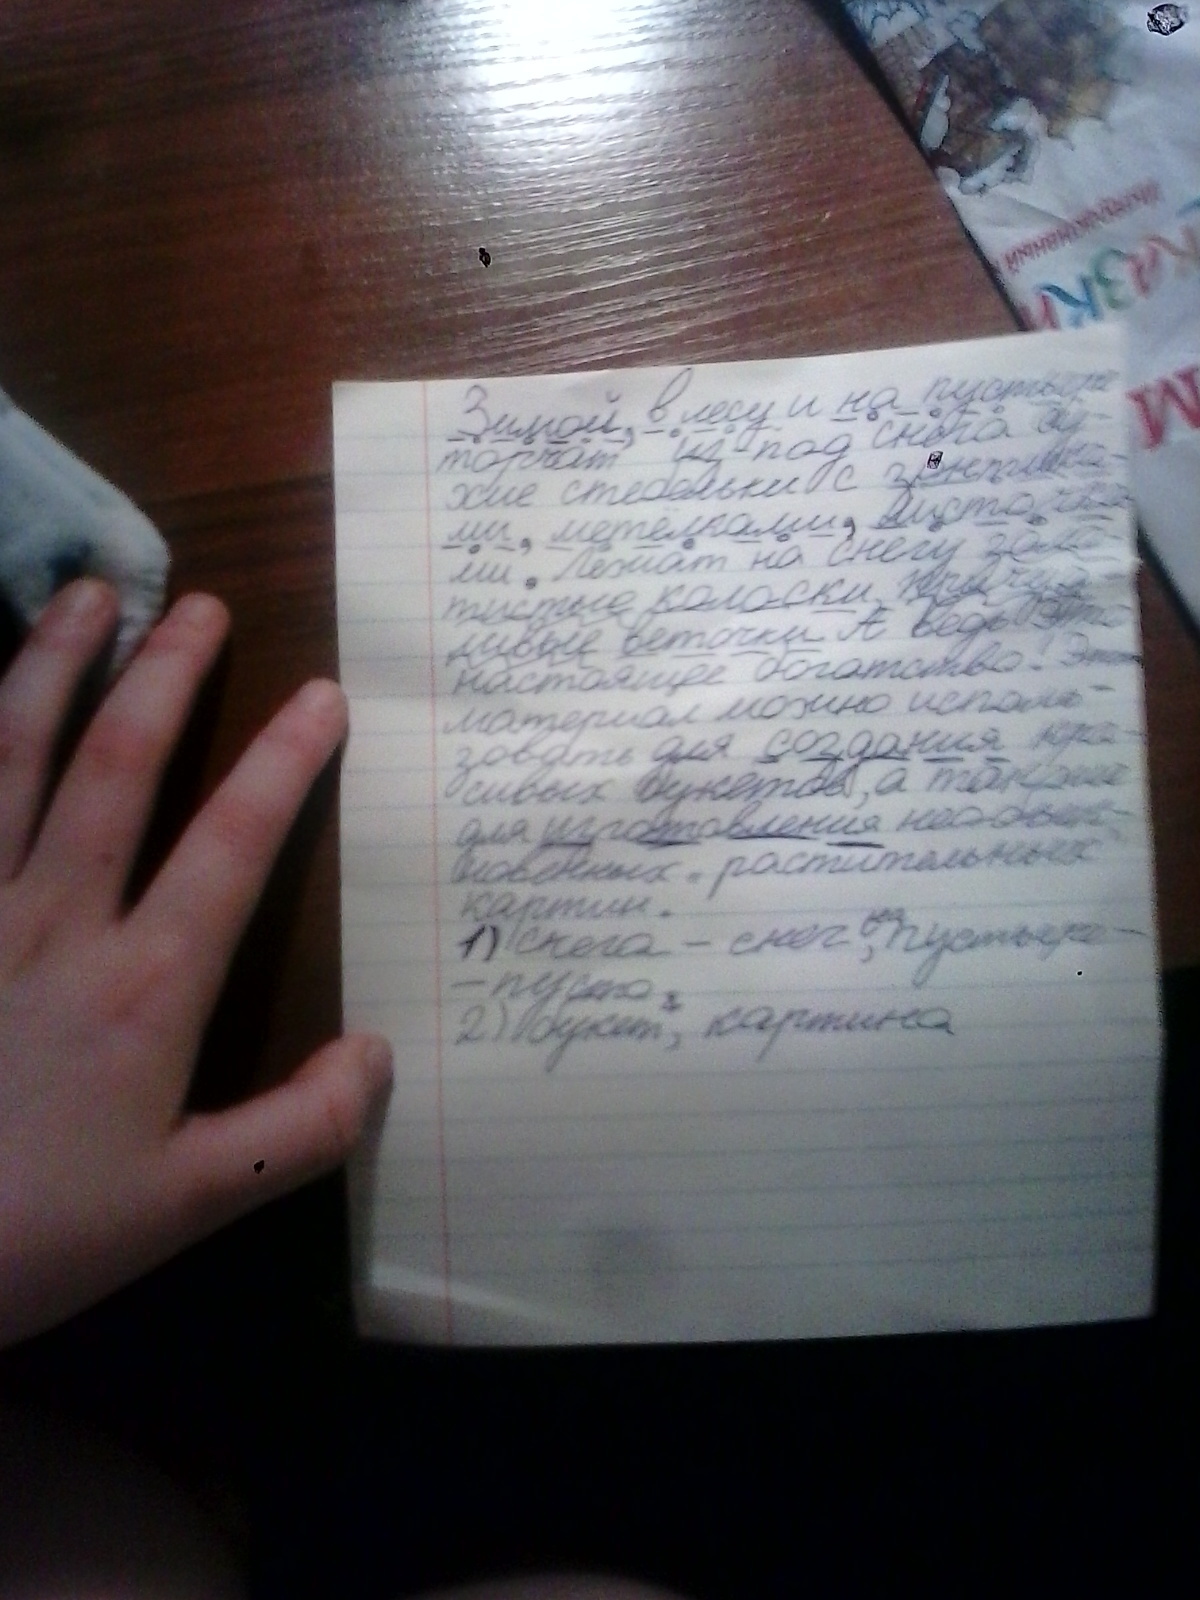 КАЗКИ
М
Зимой, в лесу и на пустыре
торчат из-под снега су-
хие стебельки с зонтика-
ми, метёлками, листочка-
ми. Лежат на снегу золо-
тистые колоски, причуд-
ливые веточки А ведь это
настоящее богатство. Этот
материал можно исполь-
зовать для создания кра-
сивых букетов, а также
для изготовления необык-
новенных растительных
картин.
1) снега - снег, на пустыре-
- пусто.
2) букет, картина